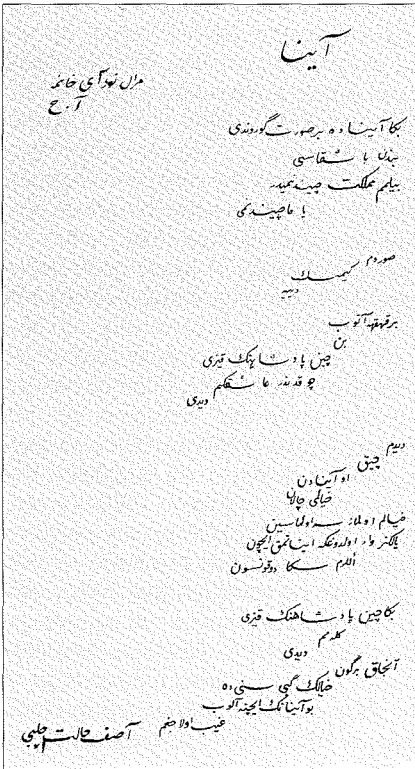 آینا
مرال نورآی خانمه
آ. ح
بكا آیناده بر صورت گوروندی
بندن باشقاسی
بیلمم مملكت چیندهمیدر
یا ماچیندهمی
صوردم
كیمسك
دییه
بر قهقهه آتوب
بن
چین پادشاهنك قیزی
چوقدندر عاشقكم
دیدی
دیدم
چیق
او آینادن
خیالی چالان
خیالم اولماز سه اولماسین
یالكز وار اولدوغكه اینانمق ایچون
أللرم سكا دوقونسون
بكا چین پادشاهنك قیزی
گلهمم
دیدی
آنجاق برگون
خیالك گبی سنی ده
بو آینانك ایچنه آلوب
غیب اولاجغم
آصف حالت چلبی